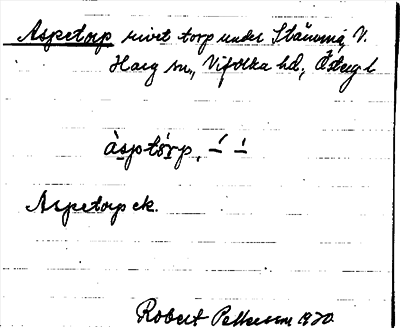 Aspetorp rivet torp under Stämma, V.
Harg sn., Vifolka hd., Östergl
àsptórp, –́ –́
Aspetorp ek.
Robert Pettersson 1920